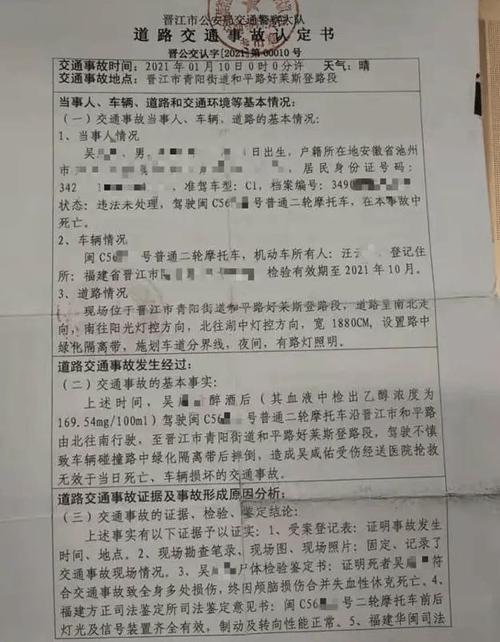 晋江市公安局交通警察大队
道路交通事故认定书
晋公交认字[2021]第00010号
交通事故时间：2021年01月10日0时0分许 天气：晴
交通事故地点：晋江市青阳街道和平路好莱斯登路段
当事人、车辆、道路和交通环境等基本情况：
（一）交通事故当事人、车辆、道路的基本情况：
1、当事人情况
吴 ，男， 日出生，户籍所在地安徽省池州
市 ，居民身份证号码：
342 ，准驾车型：C1，档案编号：3490
状态：违法未处理，驾驶闽C56 号普通二轮摩托车，在本事故中
死亡。
2、车辆情况
闽C56 号普通二轮摩托车，机动车所有人：汪 ，登记住
所：福建省晋江市 检验有效期至2021年10月。
3、道路情况
现场位于晋江市青阳街道和平路好莱斯登路段，道路呈南北走
向，南往阳光灯控方向，北往湖中灯控方向，宽1880CM，设置路中
绿化隔离带，施划车道分界线，夜间，有路灯照明。
道路交通事故发生经过：
（二）交通事故的基本事实：
上述时间，吴 醉酒后（其血液中检出乙醇浓度为
169.54mg/100ml）驾驶闽C56 号普通二轮摩托车沿晋江市和平路
由北往南行驶，至晋江市青阳街道和平路好莱斯登路段，驾驶不慎
致车辆碰撞路中绿化隔离带后摔倒，造成吴咸佑受伤经送医院抢救
无效于当日死亡，车辆损坏的交通事故。
道路交通事故证据及事故形成原因分析：
（三）交通事故的证据、检验、鉴定结论：
上述事实有以下证据予以证实：1、受案登记表：证明事故发生
时间、地点。2、现场勘查笔录、现场图、现场照片：固定、记录了
交通事故现场情况。3、吴 尸体检验鉴定书：证明死者吴 符
合交通事故致全身多处损伤，终因颅脑损伤合并失血性休克死亡。4、
福建方正司法鉴定所司法鉴定意见书：闽C56 号二轮摩托车前后
灯光及信号装置齐全有效，制动及转向性能正常。5、福建华闽司法